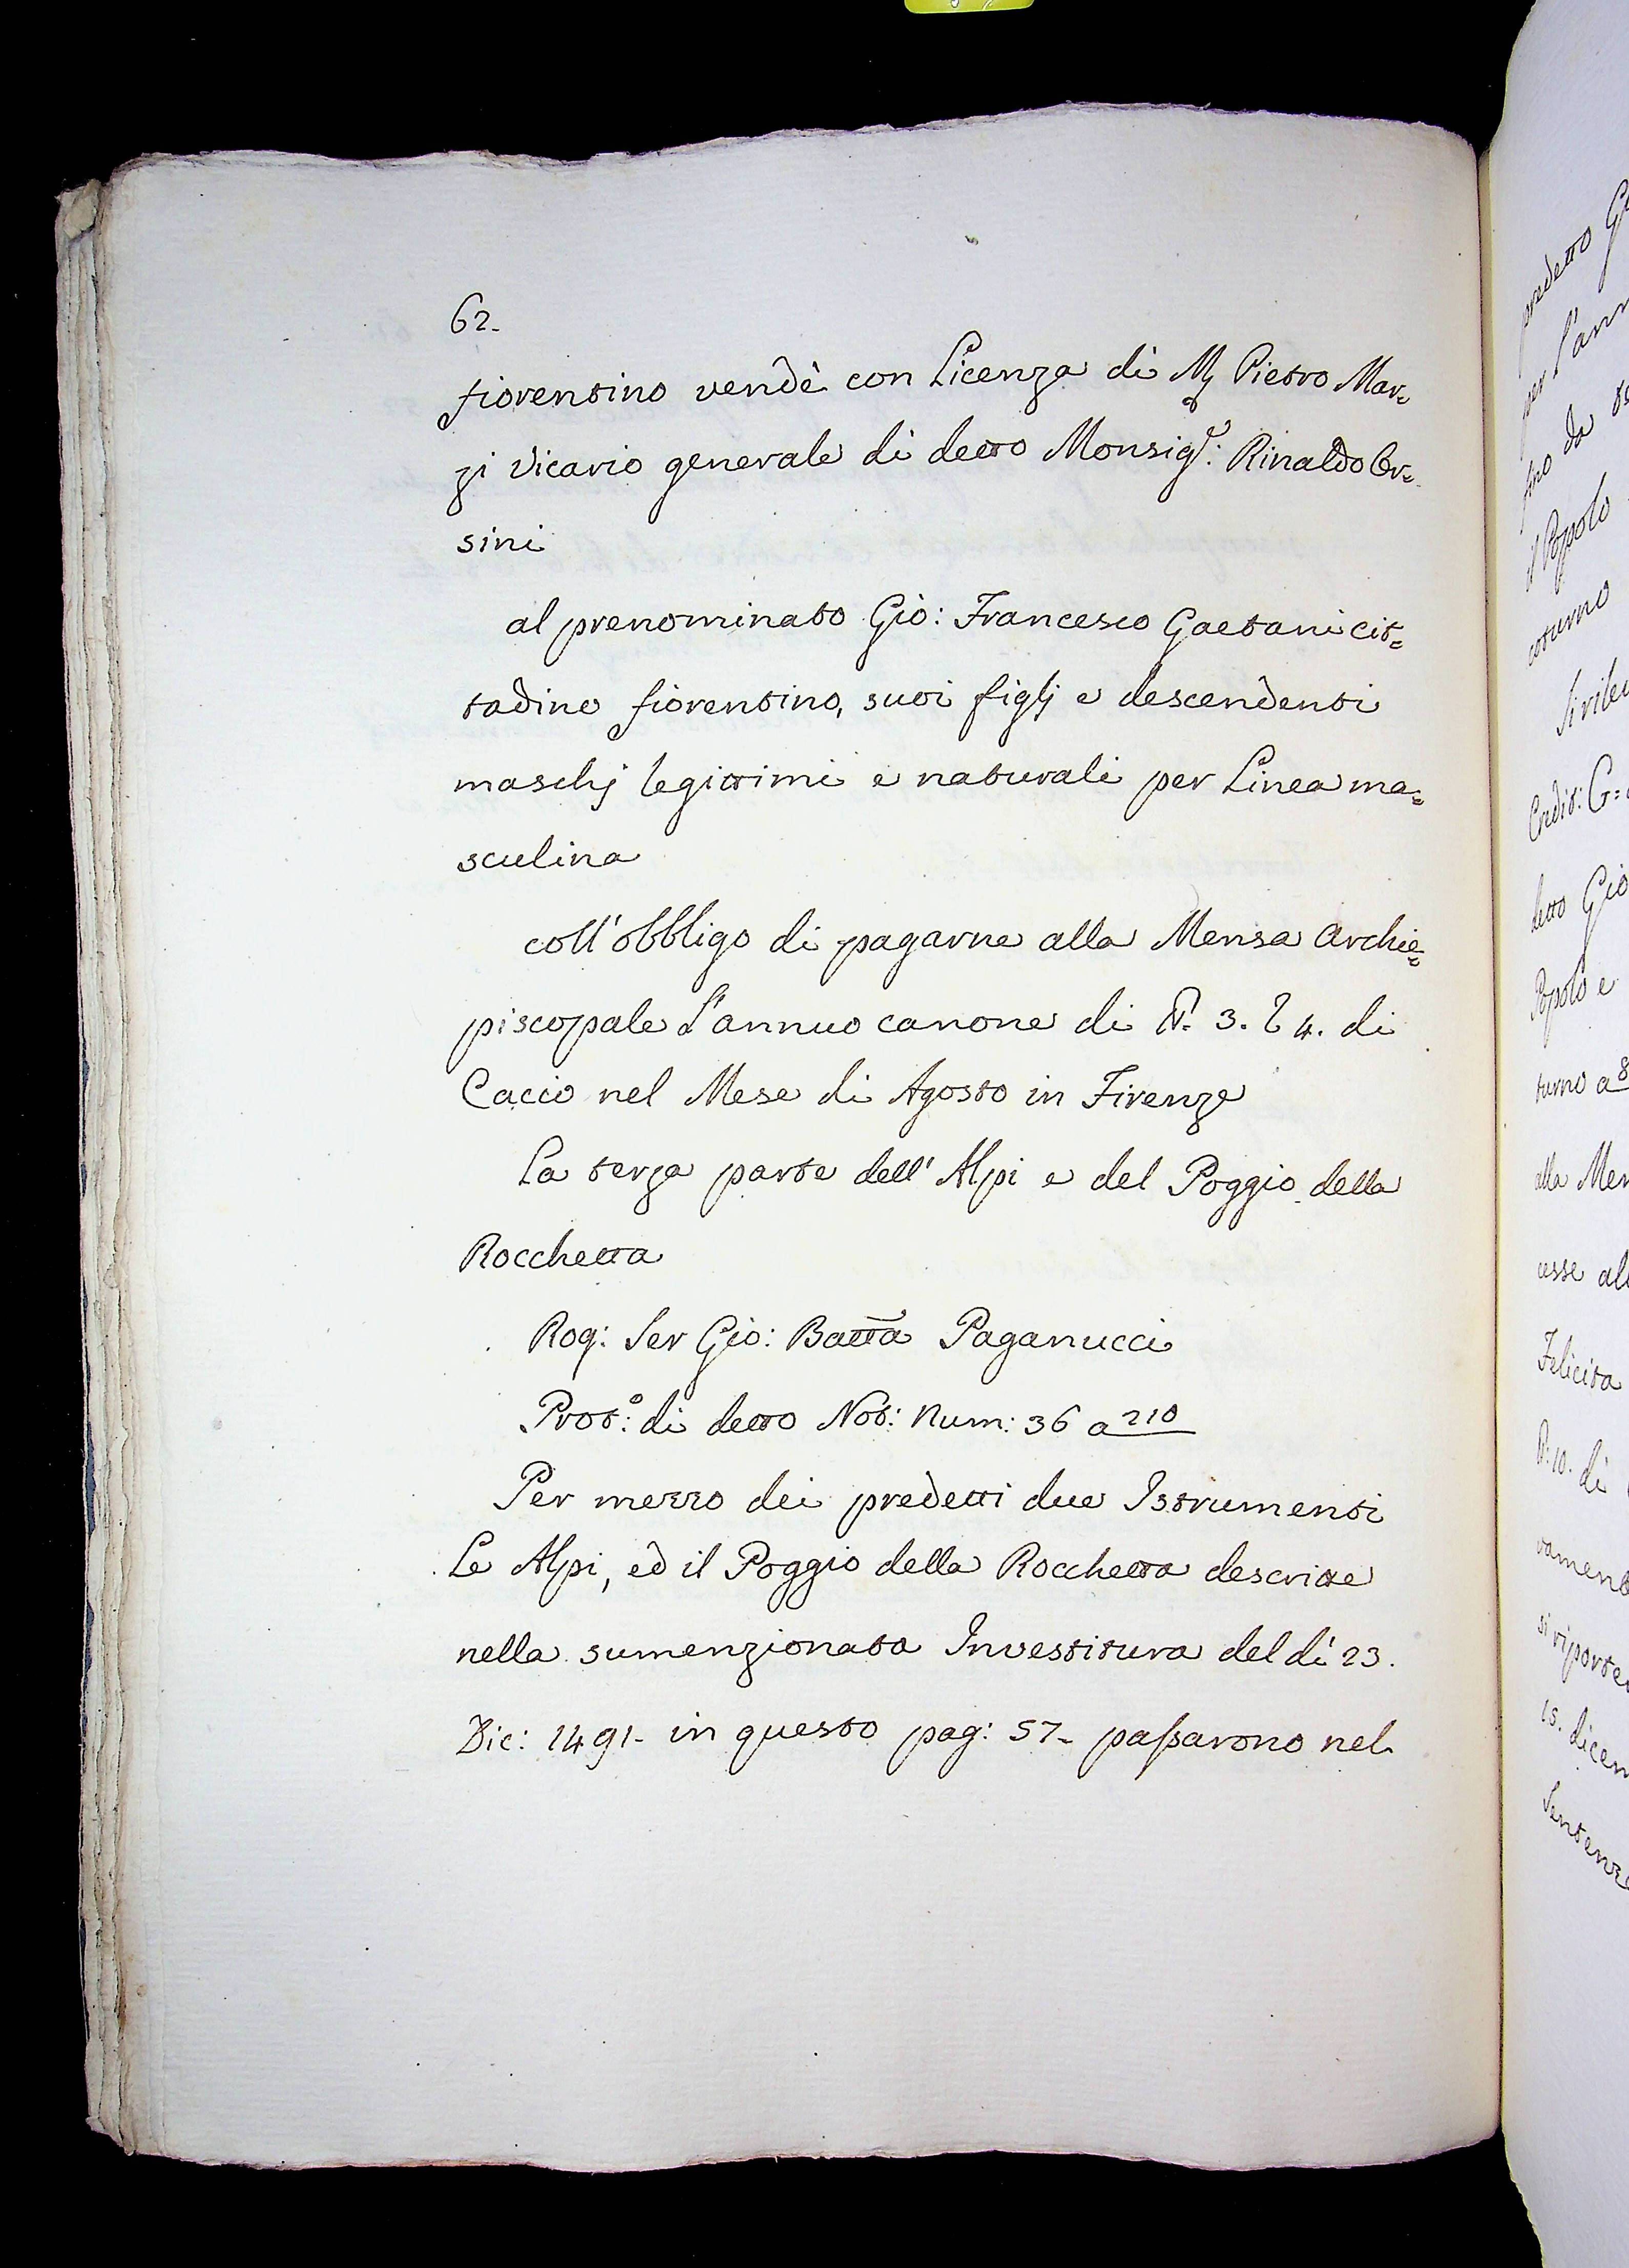 62.
fiorentino vendè con Licenza di M. Pietro Mar=
zi Vicario generale di detto Monsig.e: Rinaldo Or=
sini
al prenominato Gio: Francesco Gaetani cit=
tadino fiorentino, suoi figlj e descendenti
maschj legittimi e naturali per Linea ma=
sculina
coll'obbligo di pagarne alla Mensa Archie=
piscopale l'annuo canone di 3. 4. di
Cacio nel Mese di Agosto in Firenze
La terza parte dell'Alpi e del Poggio della
Rocchetta
Rog: Ser Gio: Batta Paganucci
Prot:o di detto Not: Num: 36 a 210
Per mezzo dei predetti due Istrumenti
Le Alpi, ed il Poggio della Rocchetta descritte
nella sumenzionata Investitura del dì 23.
Dic: 1491. in questo pag: 57. passarono nel
predetto
per l'ann
fino da
il Popolo
Credit: G:
detto Gio
Popolo e
turno a 8
alla Men
cesse al
Felicita
10. di
vamen
si riporte
15. dicem
Sentenz